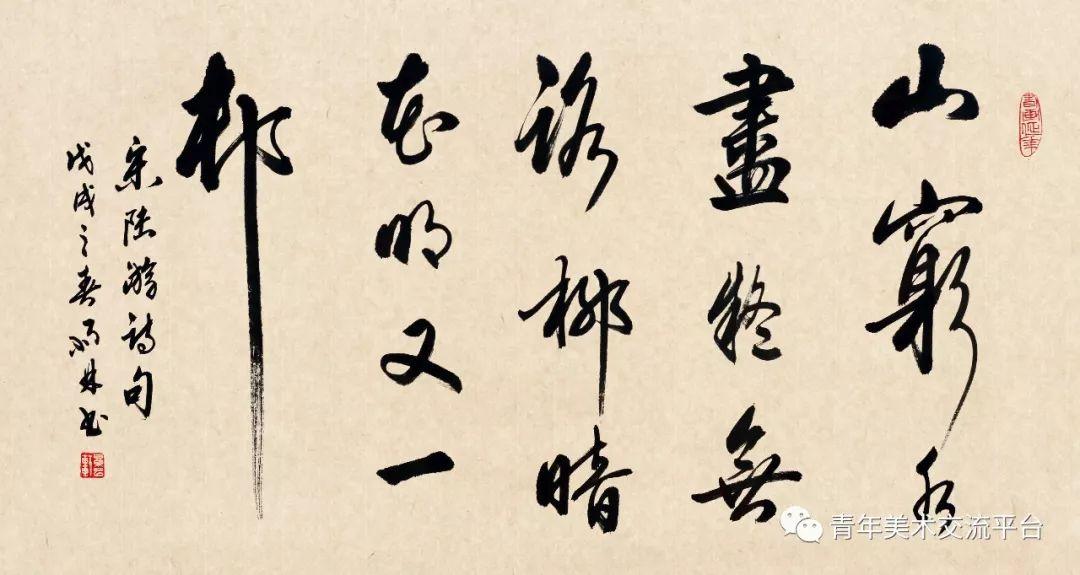 山窮水
盡疑無
路柳暗
花明又一
邨
宋陸游詩句
戊戌之春林书
青年美术交流平台